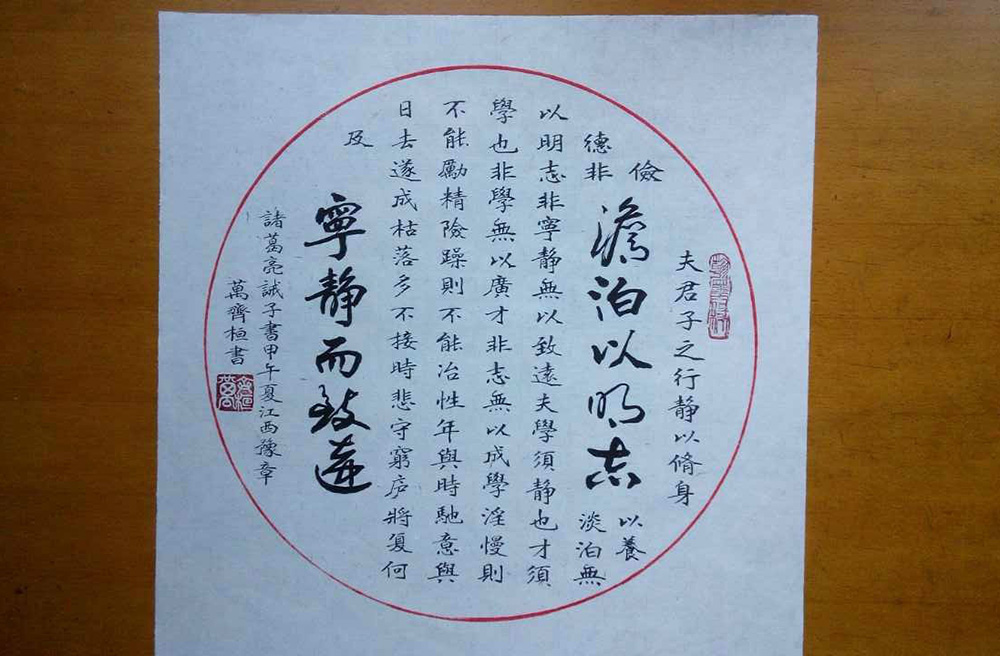 夫君子之行靜以脩身
儉
以養
德非
淡泊無
澹泊以明志
以明志非寧靜無以致遠夫學須靜也才須
學也非學無以廣才非志無以成學淫慢則
不能勵精險躁則不能冶性年與時馳意與
日去遂成枯落多不接時悲守窮庐將复何
及
寧靜而致遠
諸葛亮誡子書甲午夏江西豫章
萬齊桓書